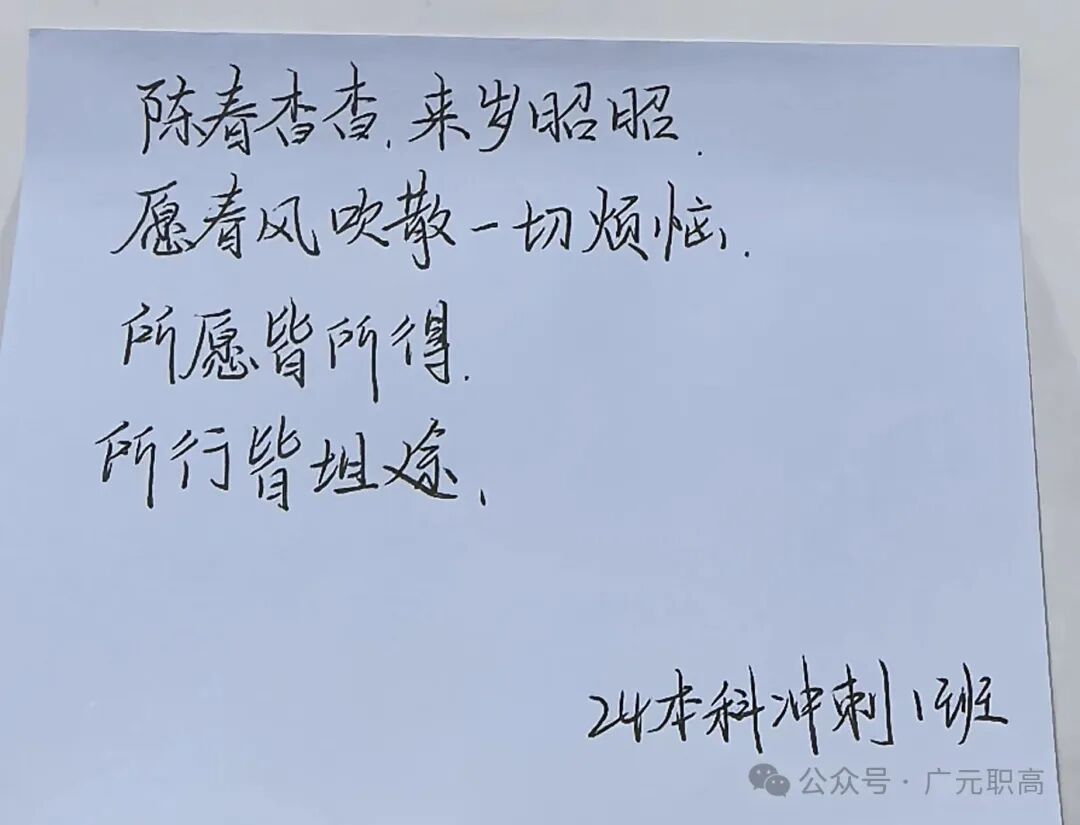 陈春杳杳,来岁昭昭.
愿春风吹散一切烦恼.
所愿皆所得.
所行皆坦途,
24本科冲刺1班
公众号·广元职高